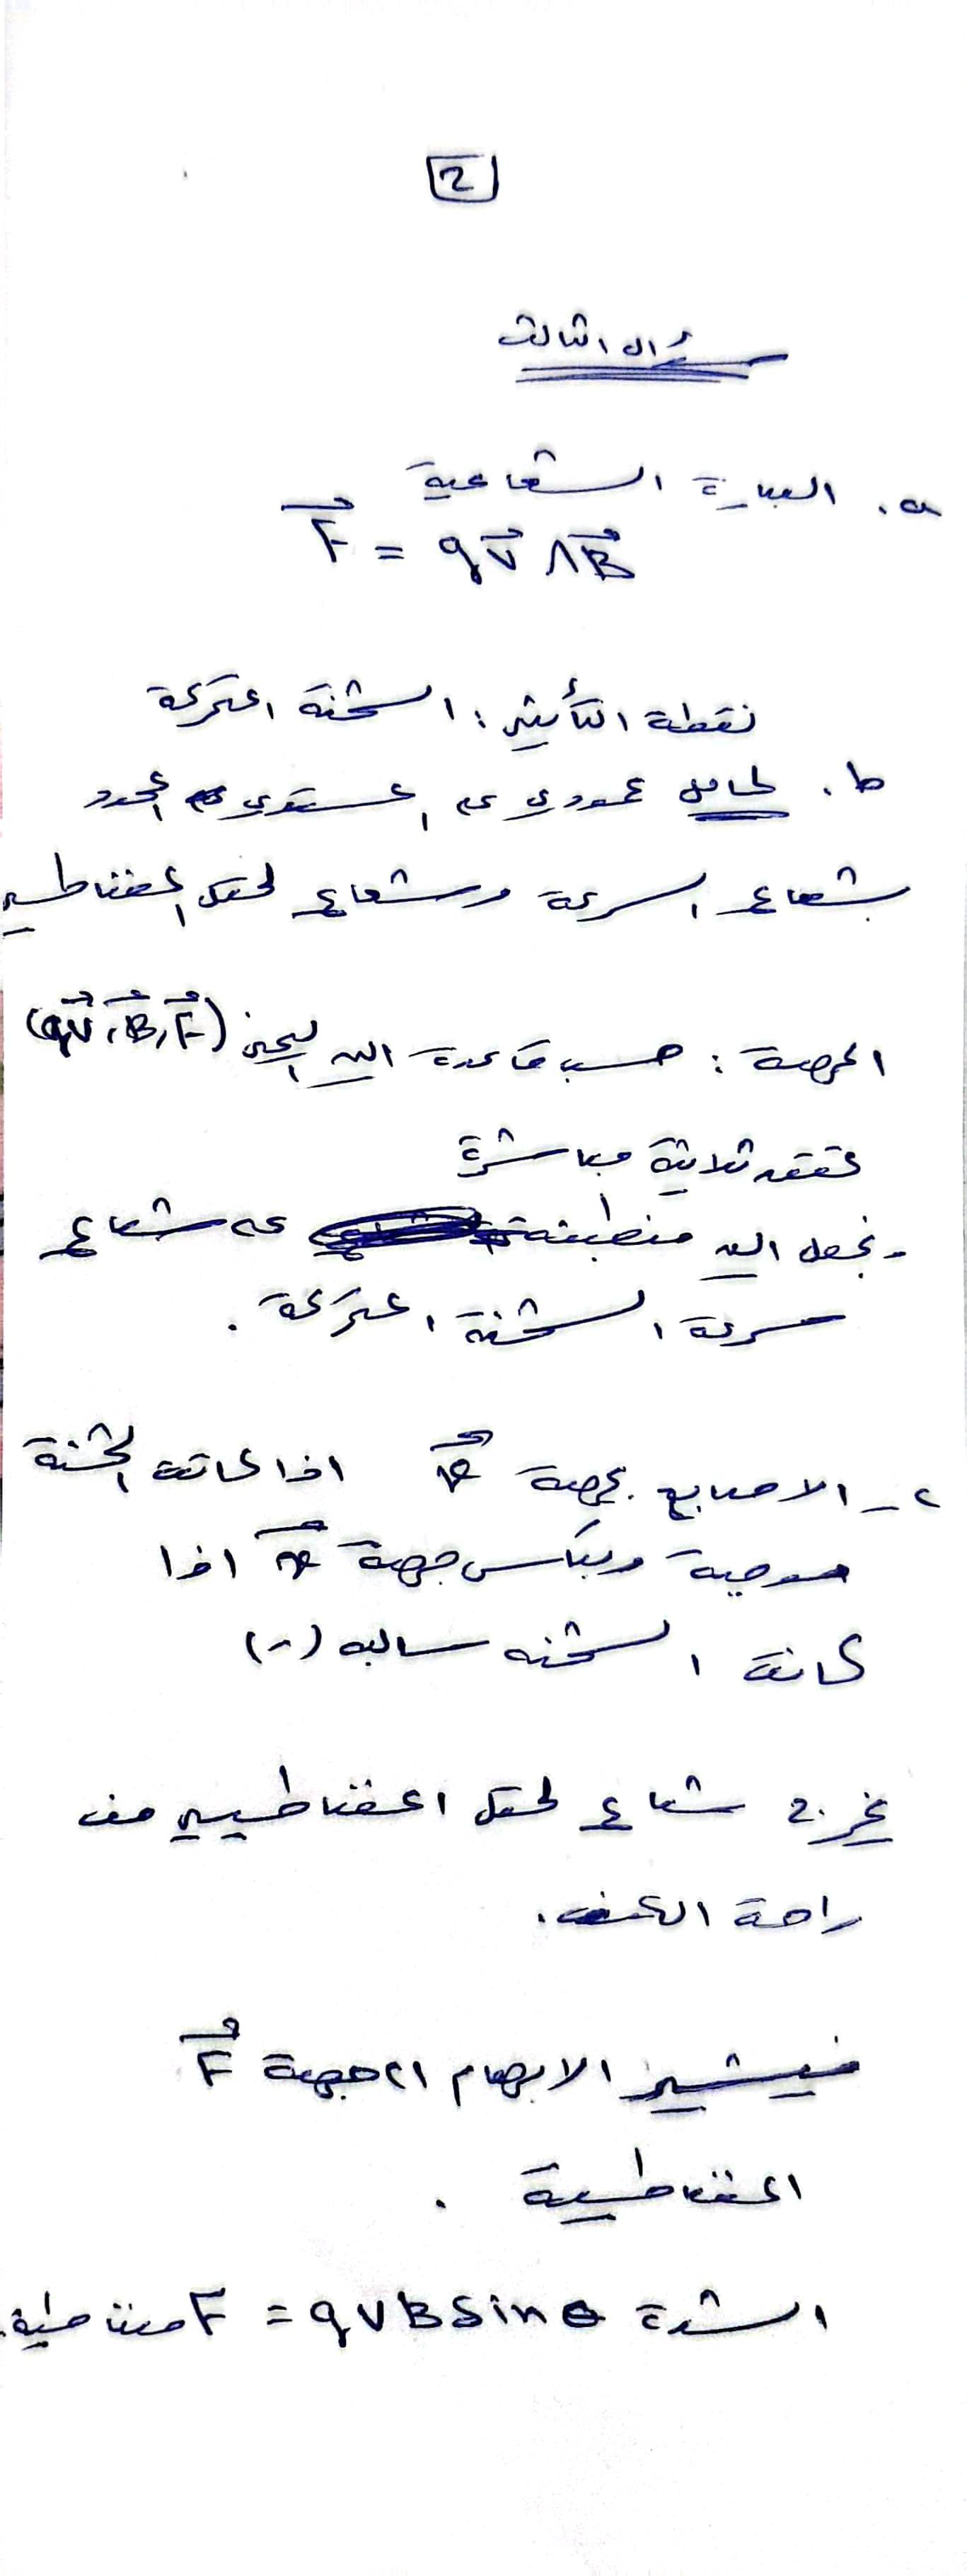 2
سؤال الثالث
a. العبارة الشعاعية
F = qv ∧ B
نقطة التأثير: الشحنة المتحركة
b. الحامل عمودي على المستوي المحدد
بشعاع السرعة وشعاع الحقل المغناطيسي
الجهة: حسب قاعدة اليد اليمنى (qv, B, F)
تحقق ثلاثية مباشرة
- نجعل اليد منطبقة على شعاع
سرعة الشحنة المتحركة.
c - الاصابع بجهة v اذا كانت الشحنة
موجبة وبعكس جهة v اذا
كانت الشحنه سالبه (-)
يخرج شعاع الحقل المغناطيسي من
راحة الكف.
فيشير الابهام الى جهة F
المغناطيسية.
الشدة F مغناطيسية = qvB sin θ